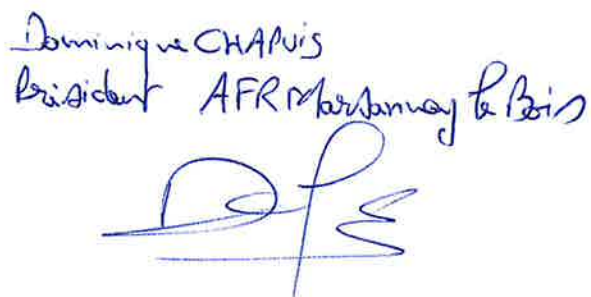 Dominique CHAPUIS
Président AFR Marsannay le Bois